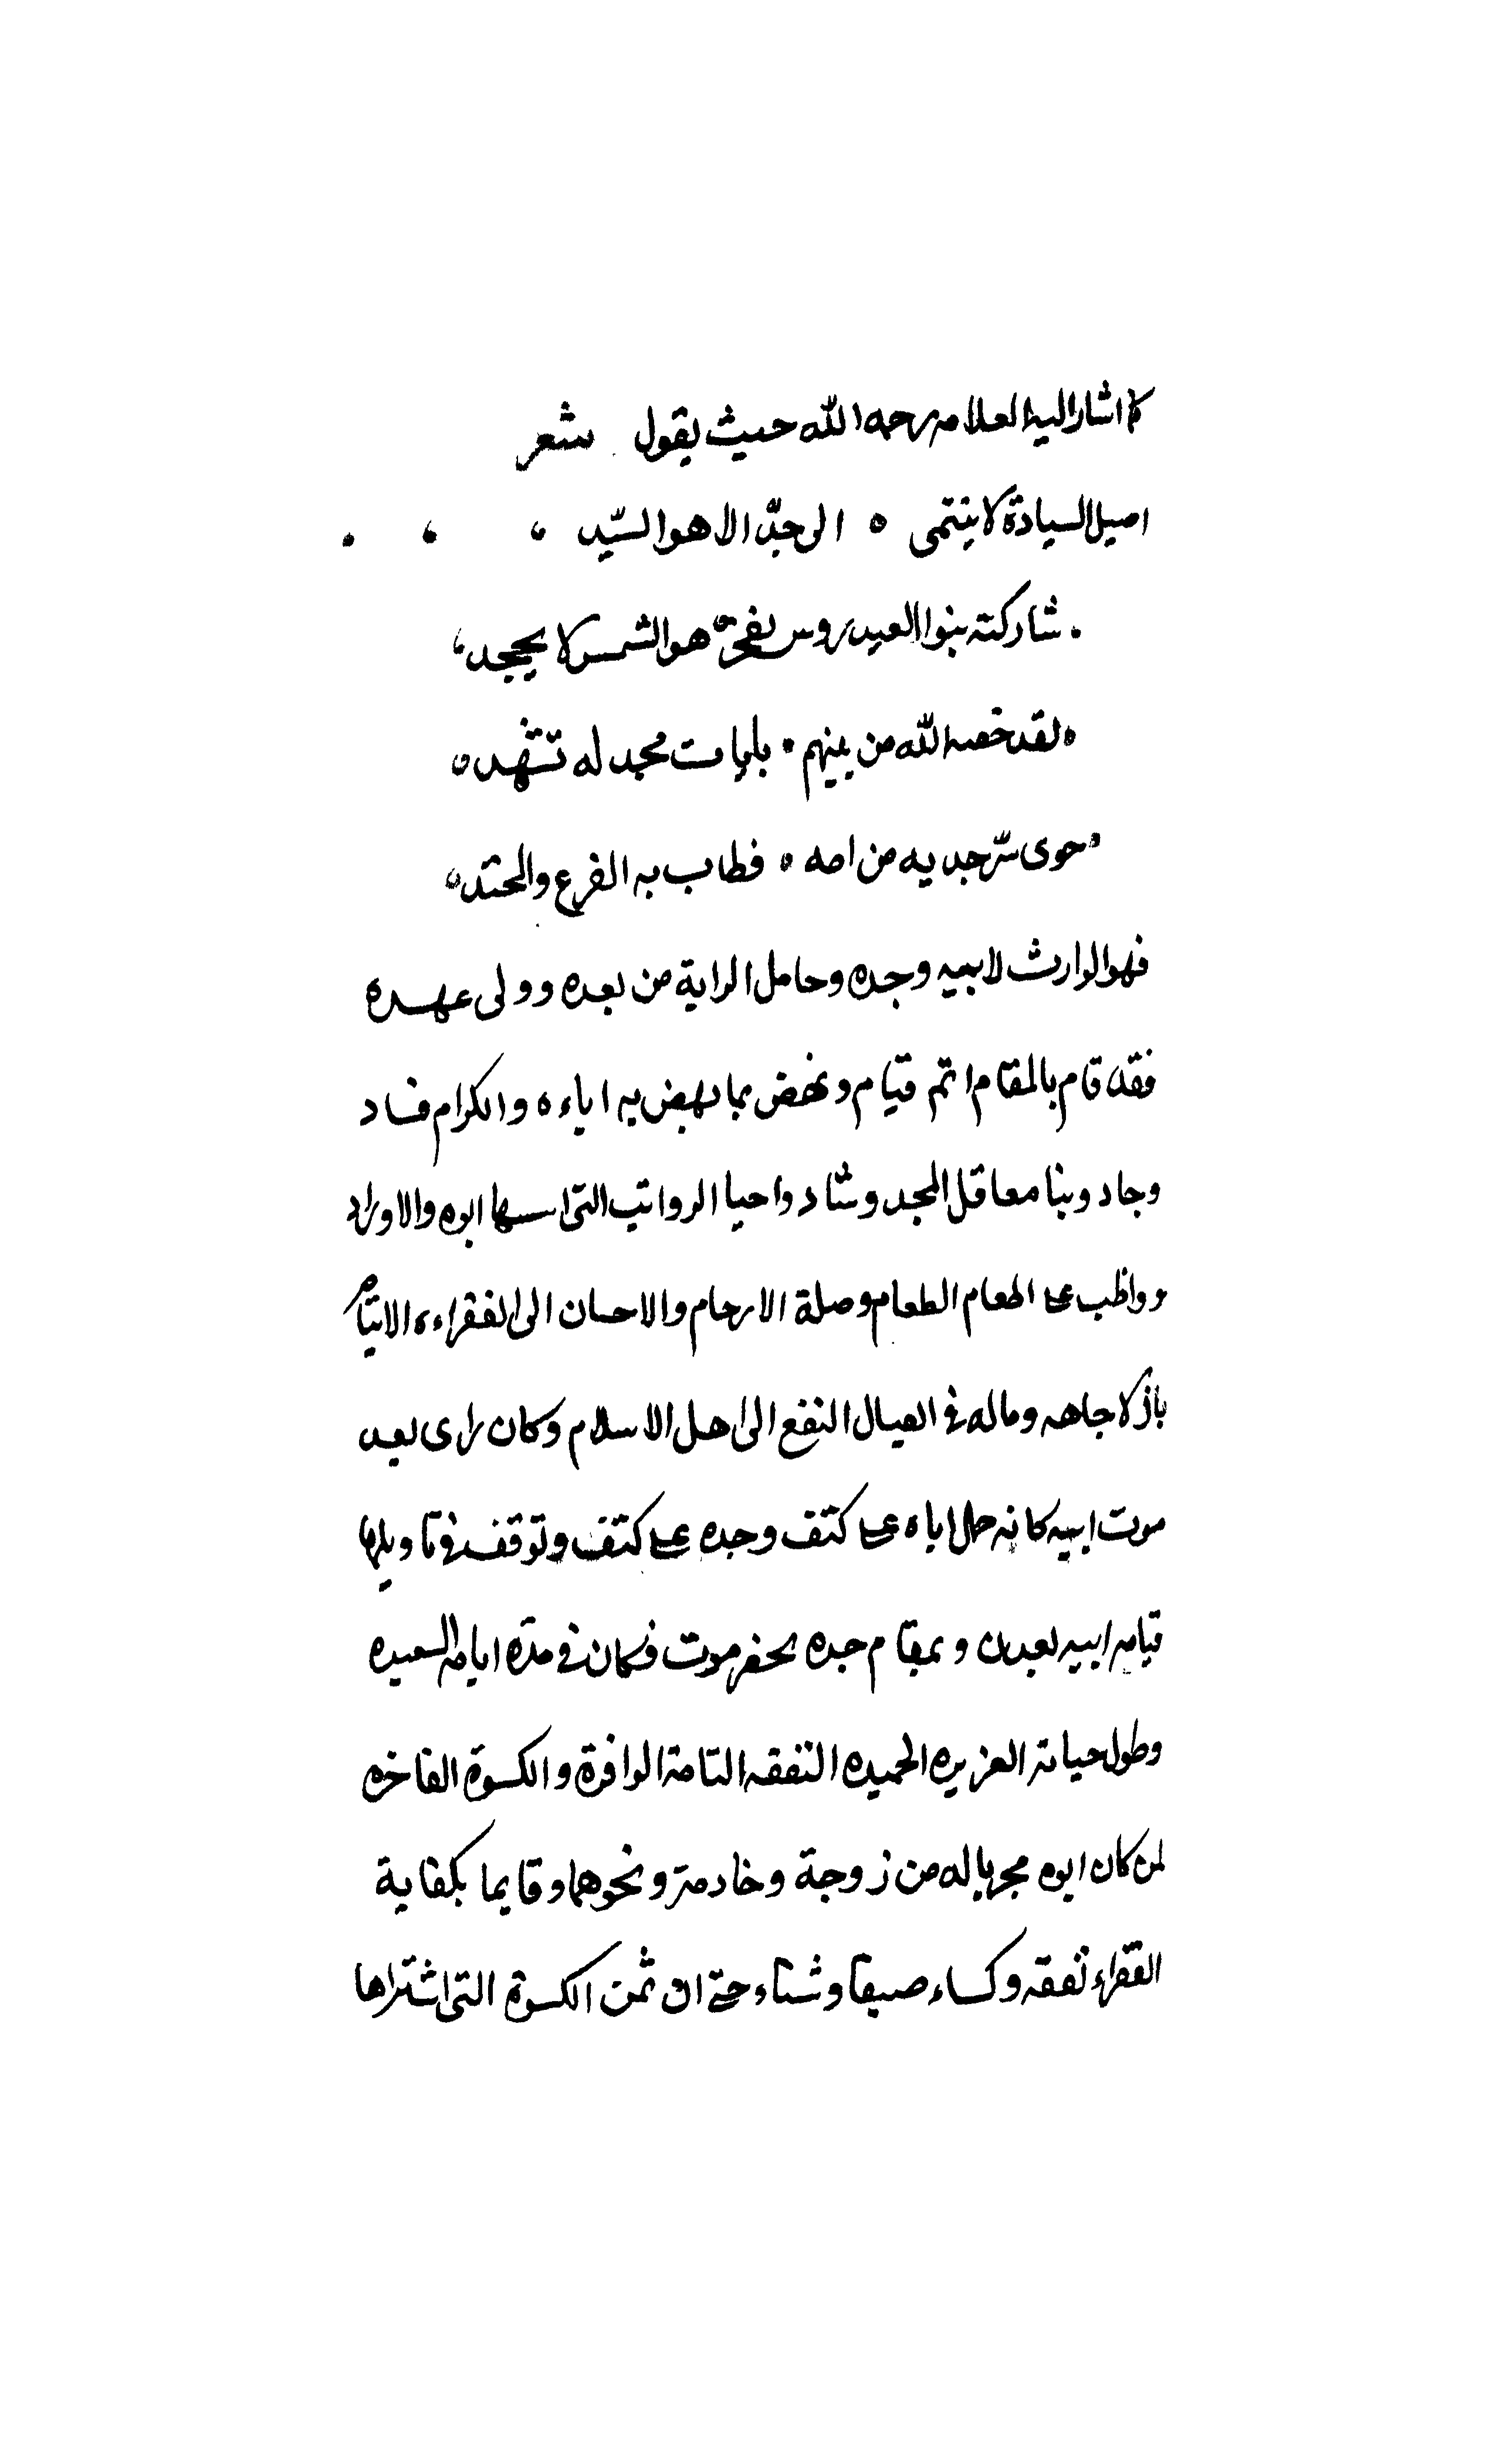 كما اشار اليه العلامه رحمه الله حيث يقول شعر
اصيل السيادة لا ينتمى ه الى جدّ الا هو السّيد
شاركته بنوا العيدروس بفخره هو الشمس لا يجحد
لقد خصه الله من بينهم بايات مجد له تشهد
حوى سرّ جديه من امه ه فطاب به الفرع والمحتد
فهو الوارث لابيه وجده وحامل الراية من بعده وولى عهده
فقد قام بالمقام اتم قيام ونهض بما نهض به اباءه والكرام فساد
وجاد وبنا معاقل المجد وشاد واحيا الرواتب التى اسسها ابوه والاوراد
وواظب على اطعام الطعام وصلة الارحام والاحسان الى الفقراء والايتام
باذلا جاهه وماله فى ايصال النفع الى اهل الاسلام وكان راى بعد
موت ابيه كانه حمل اباه على كتف وجده على كتف وتوقف فى تاويلها
قيامه ابيه بعدن وبمقام جده بحضرموت فكان فى مدة ايامه السعيده
وطول حياته العزيزه الحميده النفقه التامة الوافرة والكسوة الفاخره
لمن كان ابوه مجريا له من زوجة وخادمة ونحوهما وقايما بكفاية
الفقراء نفقه وكساء صيفا وشتاء حتى ان ثمن الكسوة التى اشتراها